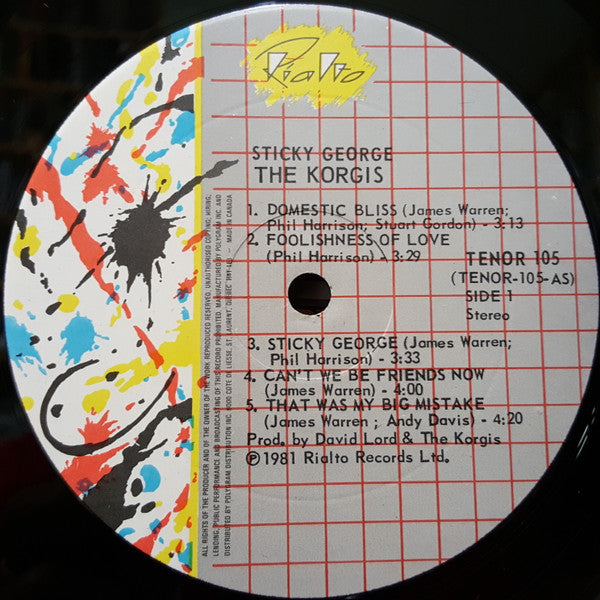 Rialto
STICKY GEORGE
THE KORGIS
1. DOMESTIC BLISS (James Warren;
Phil Harrison; Stuart Gordon) - 3:13
2. FOOLISHNESS OF LOVE
(Phil Harrison) - 3:29
TENOR 105
(TENOR-105-AS)
SIDE 1
Stereo
3. STICKY GEORGE (James Warren;
Phil Harrison) - 3:33
4. CAN'T WE BE FRIENDS NOW
(James Warren) - 4:00
5. THAT WAS MY BIG MISTAKE
(James Warren ; Andy Davis) - 4:20
Prod. by David Lord & The Korgis
℗1981 Rialto Records Ltd.
ALL RIGHTS OF THE PRODUCER AND OF THE OWNER OF THE WORK REPRODUCED RESERVED. UNAUTHORISED COPYING, HIRING,
LENDING, PUBLIC PERFORMANCE AND BROADCASTING OF THIS RECORD PROHIBITED. MANUFACTURED BY POLYGRAM INC. AND
DISTRIBUTED BY POLYGRAM DISTRIBUTION INC. 6000 COTE DE LIESSE, ST. LAURENT, QUEBEC - MADE IN CANADA